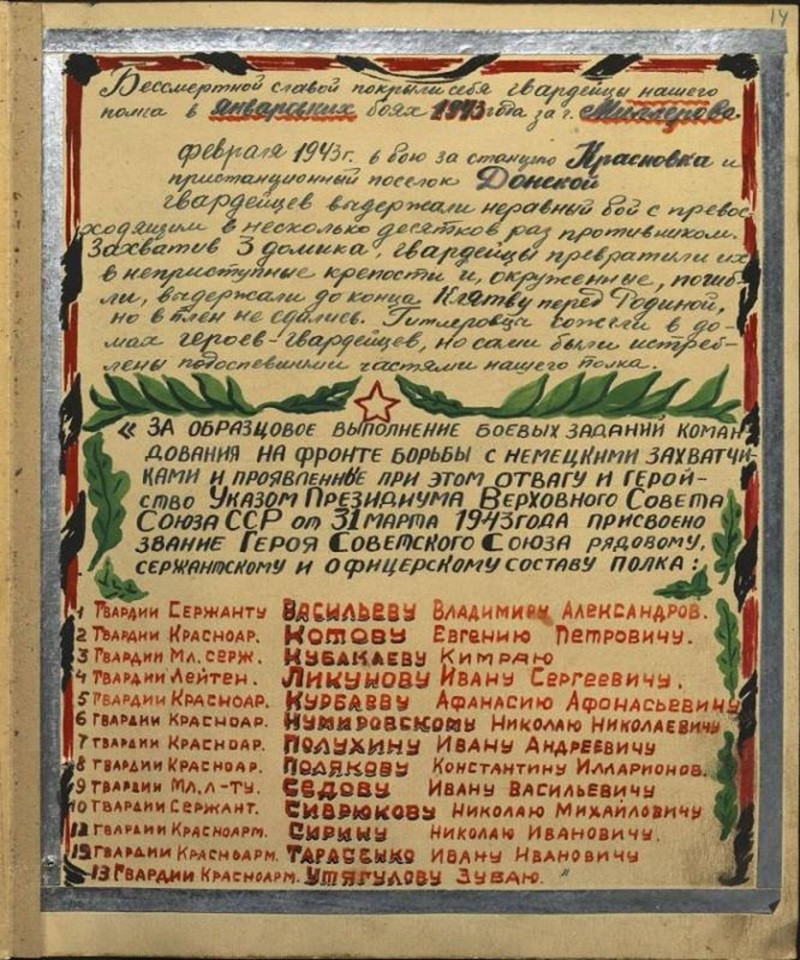 14
Бессмертной славой покрыли себя гвардейцы нашего
полка в январских боях 1943 года за г. Миллерово.
февраля 1943г. в бою за станцию Красновка и
пристанционный поселок Донской
гвардейцев выдержали неравный бой с превос-
ходящим в несколько десятков раз противником.
Захватив 3 домика, гвардейцы превратили их
в неприступные крепости и, окруженные, погиб-
ли, выдержали до конца Клятву перед Родиной,
но в плен не сдались. Гитлеровцы сожгли в до-
мах героев-гвардейцев, но сами были истреб-
лены подоспевшими частями нашего полка.
« ЗА ОБРАЗЦОВОЕ ВЫПОЛНЕНИЕ БОЕВЫХ ЗАДАНИЙ КОМАН
ДОВАНИЯ НА ФРОНТЕ БОРЬБЫ С НЕМЕЦКИМИ ЗАХВАТЧИ-
КАМИ И ПРОЯВЛЕННЫЕ ПРИ ЭТОМ ОТВАГУ И ГЕРОЙ-
СТВО УКАЗОМ ПРЕЗИДИУМА ВЕРХОВНОГО СОВЕТА
СОЮЗА ССР от 31 МАРТА 1943 ГОДА ПРИСВОЕНО
ЗВАНИЕ ГЕРОЯ СОВЕТСКОГО СОЮЗА РЯДОВОМУ,
СЕРЖАНТСКОМУ И ОФИЦЕРСКОМУ СОСТАВУ ПОЛКА:
1 ГВАРДИИ СЕРЖАНТУ ВАСИЛЬЕВУ ВЛАДИМИРУ АЛЕКСАНДРОВ.
2 ГВАРДИИ КРАСНОАР. КОТОВУ ЕВГЕНИЮ ПЕТРОВИЧУ.
3 ГВАРДИИ МЛ. СЕРЖ. КУБАКАЕВУ КИМРАЮ
4 ГВАРДИИ ЛЕЙТЕН. ЛИКУНОВУ ИВАНУ СЕРГЕЕВИЧУ.
5 ГВАРДИИ КРАСНОАР. КУРБАЕВУ АФАНАСИЮ АФОНАСЬЕВИЧУ
6 ГВАРДИИ КРАСНОАР. НУМИРОВСКОМУ НИКОЛАЮ НИКОЛАЕВИЧУ
7 ГВАРДИИ КРАСНОАР. ПОЛУХИНУ ИВАНУ АНДРЕЕВИЧУ
8 ГВАРДИИ КРАСНОАР. ПОЛЯКОВУ КОНСТАНТИНУ ИЛЛАРИОНОВ.
9 ГВАРДИИ МЛ. Л-ТУ. СЕДОВУ ИВАНУ ВАСИЛЬЕВИЧУ
10 ГВАРДИИ СЕРЖАНТ. СИВРЮКОВУ НИКОЛАЮ МИХАЙЛОВИЧУ
ГВАРДИИ КРАСНОАРМ. СИРИНУ НИКОЛАЮ ИВАНОВИЧУ.
12 ГВАРДИИ КРАСНОАРМ. ТАРАСЕНКО ИВАНУ ИВАНОВИЧУ
13 ГВАРДИИ КРАСНОАРМ. УТЯГУЛОВУ ЗУБАЮ. "